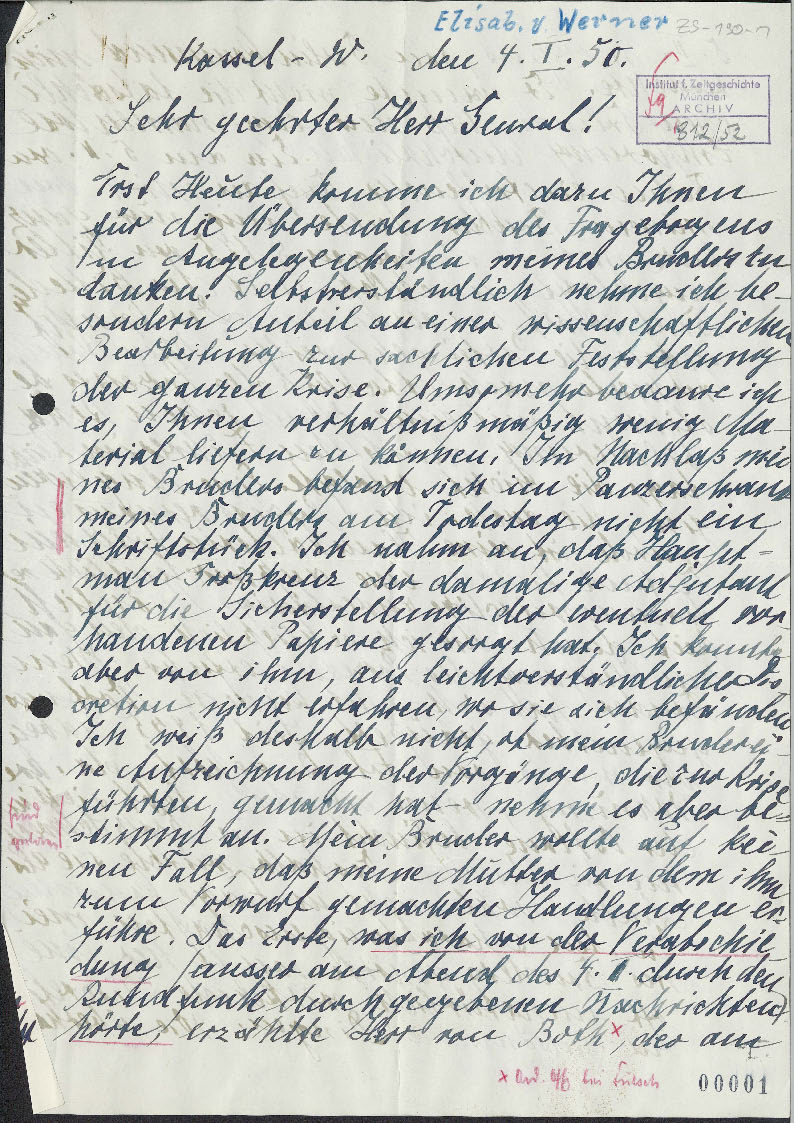 Elisab. v. Werner ZS-130-1
Kassel - W. den 4. I. 50.
Institut f. Zeitgeschichte
München
ARCHIV
812/52
Sehr geehrter Herr General!
Erst Heute komme ich dazu Ihnen
für die Übersendung des Fragebogens
in Angelegenheiten meines Bruders zu
danken. Selbstverständlich nehme ich be-
sondern Anteil an einer wissenschaftlichen
Bearbeitung zur sachlichen Feststellung
der ganzen Krise. Umsomehr bedaure ich
es, Ihnen verhältnißmäßig wenig Ma-
terial liefern zu können. Im Nachlaß mei
nes Bruders befand sich im Panzerschrank
meines Bruders am Todestag nicht ein
Schriftstück. Ich nahm an, daß Haupt-
man Troßkreuz der damalige Adjutant
für die Sicherstellung der eventuell vor
handenen Papiere gesorgt hat. Ich konnte
aber von ihm, aus leichtverständlicher Dis
cretion nicht erfahren, wo sie sich befänden
Ich weiß deshalb nicht, ob mein Bruder ei-
ne Aufzeichnung der Vorgänge, die zur Krise
führten, gemacht hat - nehme es aber be-
stimmt an. Mein Bruder wollte auf kei
nen Fall, daß meine Mutter von dem ihm
zum Vorwurf gemachten Handlungen er-
führe. Das Erste, was ich von der Verabschie
dung (ausser am Abend des 4. II. durch den
Rundfunk durchgegebenen Nachrichten)
hörte, erzählte Herr von Both x, der am
x Ord. Offz bei Fritsch
00001